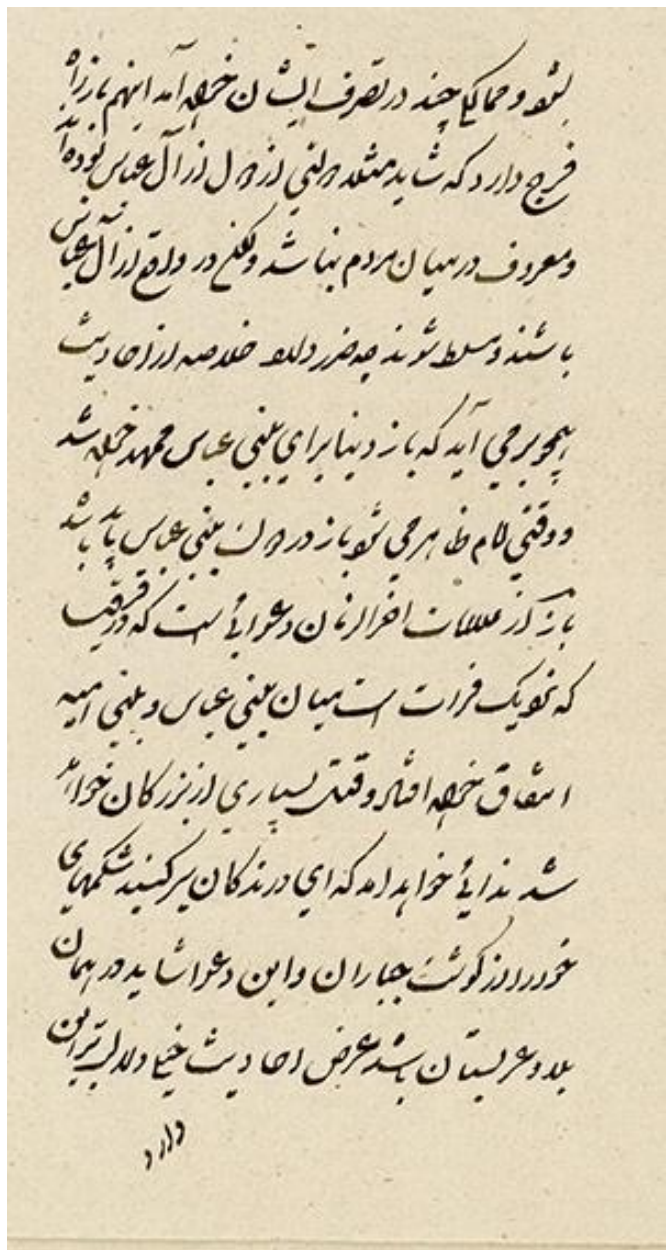 بشود و ممالکی چند در تصرف ایشان خواهد آمد اینهم باز راه
فرج دارد که شاید مثلا دولتی از اول از آل عباس نبوده اند
و معروف در میان مردم نباشد ولکن در واقع از آل عباس
باشند و مسلط شوند چه ضرر دارد خلاصه از احادیث
اینجور بر می آید که باز دنیا برای بنی عباس ممهد خواهد شد
و وقتی امام ظاهر می شود باز دولت بنی عباس باید باشد
باز از علامات اخر الزمان دعوائی است که در قرقیسا
که نزدیک فرات است میان بنی عباس و بنی امیه
اتفاق خواهد افتاد و قتل بسیاری از بزرگان خواهد
شد ندائی خواهد امد که ای درندگان سیر کنید شکمهای
خود را از گوشت جباران و این دعوا شاید در همان
بلاد عربستان باشد غرض احادیث خیلی دلالت بر این
دارد